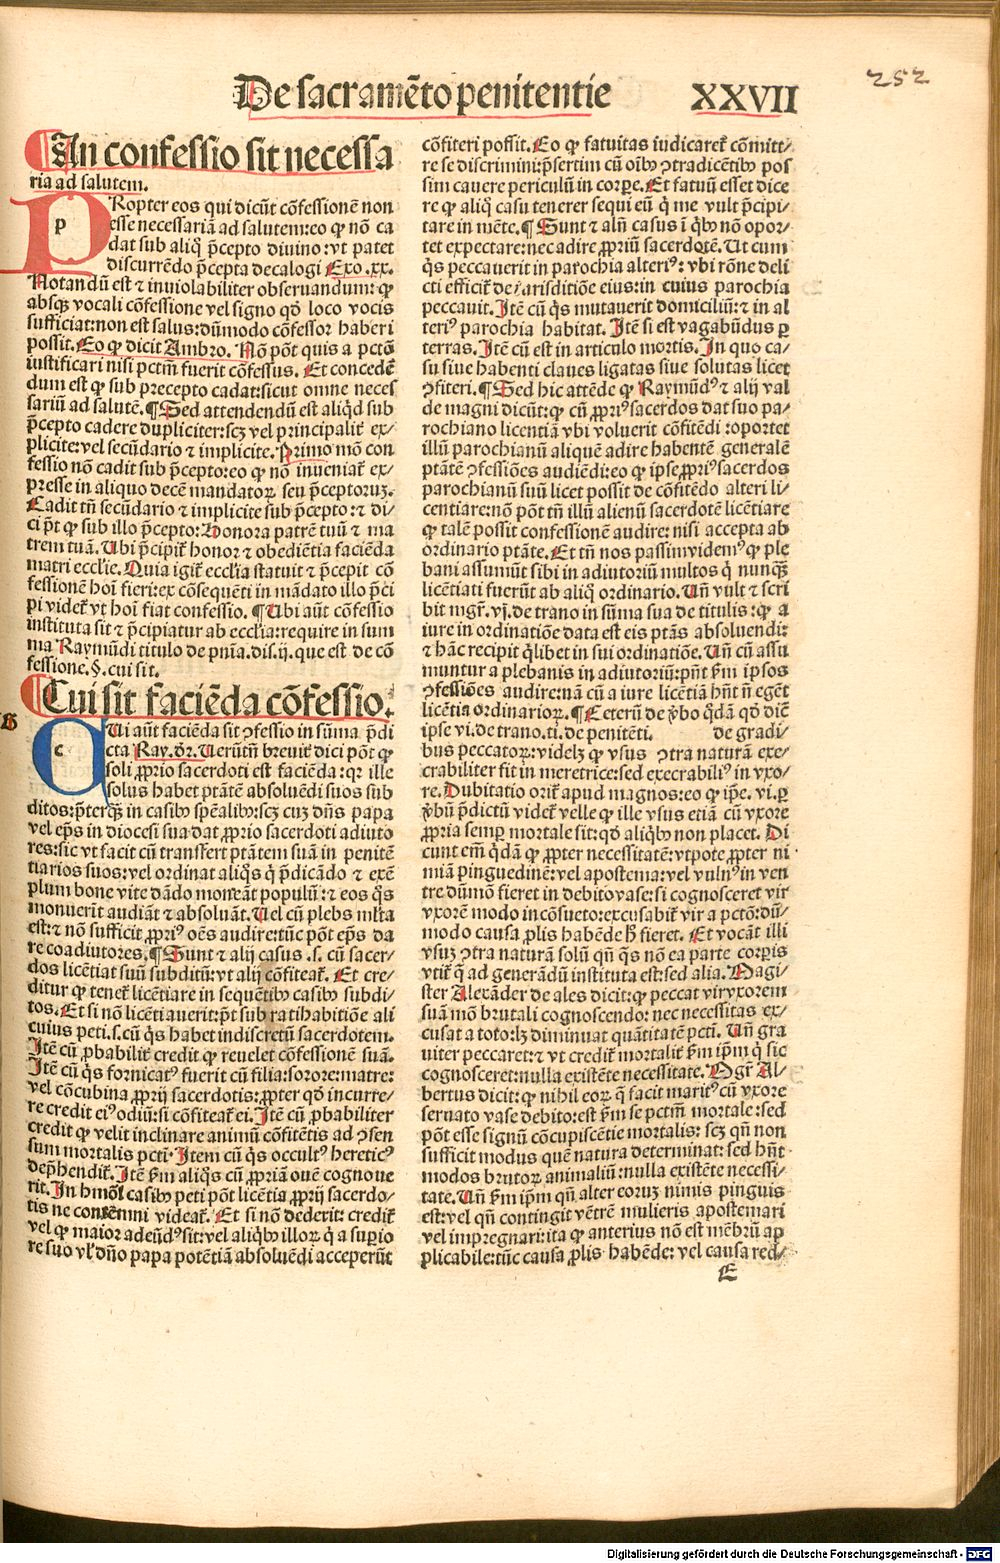 De sacramẽto penitentie XXVII
252
An confessio sit necessa
ria ad salutem.
PRopter eos qui dicũt cõfessionẽ non
p esse necessariã ad salutem: eo ꝙ nõ ca
dat sub aliq̃ p̃cepto diuino: vt patet
discurrẽdo p̃cepta decalogi Exo. xx.
Notandũ est ⁊ inuiolabiliter obseruandum: ꝙ
absqꝫ vocali cõfessione vel signo qđ loco vocis
sufficiat: non est salus: dũmodo cõfessor haberi
possit. Eo ꝙ dicit Ambro. Nõ põt quis a pctõ
iustificari nisi pctm̃ fuerit cõfessus. Et concedẽ
dum est ꝙ sub precepto cadat: sicut omne neces
sariũ ad salutẽ. ¶ Sed attendendũ est aliqđ sub
p̃cepto cadere dupliciter: scꝫ vel principalit̃ ex⸗
plicite: vel secũdario ⁊ implicite. Primo mõ con
fessio nõ cadit sub p̃cepto: eo ꝙ nõ inueniat̃ ex⸗
presse in aliquo decẽ mandatoꝝ seu p̃ceptoruꝫ.
Cadit tñ secũdario ⁊ implicite sub p̃cepto: ⁊ di⸗
ci p̃t ꝙ sub illo p̃cepto: Honora patrẽ tuũ ⁊ ma
trem tuã. Ubi p̃cipit̃ honor ⁊ obediẽtia faciẽda
matri ecclie. Quia igit̃ ecclia statuit ⁊ p̃cepit cõ
fessionẽ hoĩ fieri: ex cõsequẽti in mãdato illo p̃ci
pi videt̃ vt hoĩ fiat confessio. ¶ Ubi aũt cõfessio
instituta sit ⁊ p̃cipiatur ab ecclia: require in sum
ma Raymũdi titulo de pnĩa. dis. ij. que est de cõ
fessione. §. cui sit.
Cui sit faciẽda cõfessio.
B
CUi aũt faciẽda sit ꝯfessio in sũma p̃di
c cta Ray. dr̃. Uerũtñ breuit̃ dici põt ꝙ
soli ꝓprio sacerdoti est faciẽda: qr ille
solus habet ptãtẽ absoluẽdi suos sub
ditos: p̃terqꝫ in casibꝰ sp̃ealibꝰ: scꝫ cuꝫ dñs papa
vel ep̃s in diocesi sua dat ꝓprio sacerdoti adiuto
res: sic vt facit cũ transfert ptãtem suã in penitẽ
tiarios suos: vel ordinat aliq̃s q̃ p̃dicãdo ⁊ exẽ
plum bone vite dãdo moneãt populũ: ⁊ eos q̃s
monuerit audiãt ⁊ absoluãt. Uel cũ plebs mlta
est: ⁊ nõ sufficit ꝓpriꝰ oẽs audire: tũc põt ep̃s da
re coadiutores. ¶ Sunt ⁊ alij casus .s. cũ sacer⸗
dos licẽtiat suũ subditũ: vt alij cõfiteat̃. Et cre⸗
ditur ꝙ tenet̃ licẽtiare in sequẽtibꝰ casibꝰ subdi⸗
tos. Et si nõ licẽtiauerit: p̃t sub ratihabitiõe ali
cuius peti. s. cũ q̃s habet indiscretũ sacerdotem.
Itẽ cũ ꝓbabilit̃ credit ꝙ reuelet cõfessionẽ suã.
Itẽ cũ q̃s fornicatꝰ fuerit cũ filia: sorore: matre:
vel cõcubina ꝓprij sacerdotis: ꝓpter qđ incurre⸗
re credit eiꝰ odiũ: si cõfiteat̃ ei. Itẽ cũ ꝓbabiliter
credit ꝙ velit inclinare animũ cõfitẽtis ad ꝯsen
sum mortalis pcti. Item cũ q̃s occultꝰ hereticꝰ
dep̃hendit̃. Itẽ s̃m aliq̃s cũ ꝓpriã ouẽ cognoue
rit. In hmõi casibꝰ peti põt licẽtia ꝓprij sacerdo⸗
tis ne contemni videat̃. Et si nõ dederit: credit̃
vel ꝙ maior adeũdꝰ sit: vel aliqꝫ illoꝝ q̃ a supio
re suo vl̃ dño papa potẽtiã absoluẽdi acceperũt
cõfiteri possit. Eo ꝙ fatuitas iudicaret̃ cõmitt⸗
re se discrimini: p̃sertim cũ oĩbꝰ ꝯtradicẽtibꝰ pos
sim cauere periculũ in corpe. Et fatuũ esset dice
re ꝙ aliq̃ casu tenerer sequi eũ q̃ me vult p̃cipi⸗
tare in mẽte. ¶ Sunt ⁊ alñ casus ĩ q̃bꝰ nõ opor⸗
tet expectare: nec adire ꝓpriũ sacerdotẽ. Ut cum
q̃s peccauerit in parochia alteriꝰ: vbi rõne deli
cti efficit̃ de iurisditiõe eius: in cuius parochia
peccauit. Itẽ cũ q̃s mutauerit domiciliũ: ⁊ in al
teriꝰ parochia habitat. Itẽ si est vagabũdus ꝑ
terras. Itẽ cũ est in articulo mortis. In quo ca⸗
su siue habenti claues ligatas siue solutas licet
ꝯfiteri. ¶ Sed hic attẽde ꝙ Raymũdꝰ ⁊ alij val
de magni dicũt: ꝙ cũ ꝓpriꝰ sacerdos dat suo pa⸗
rochiano licentiã vbi voluerit cõfitẽdi: oportet
illũ parochianũ aliquẽ adire habentẽ generalẽ
ptãtẽ ꝯfessiões audiẽdi: eo ꝙ ipse ꝓpriꝰ sacerdos
parochianũ suũ licet possit de cõfitẽdo alteri li⸗
centiare: nõ põt tñ illũ alienũ sacerdotẽ licẽtiare
ꝙ talẽ possit confessionẽ audire: nisi accepta ab
ordinario ptãte. Et tñ nos passim videmꝰ ꝙ ple
bani assumũt sibi in adiutoriũ multos q̃ nunqꝫ
licẽtiati fuerũt ab aliq̃ ordinario. Uñ vult ⁊ scri
bit mgr̃. vj. de trano in sũma sua de titulis: ꝙ a
iure in ordinatiõe data est eis ptãs absoluendi:
⁊ hãc recipit q̃libet in sui ordinatiõe. Uñ cũ assu
muntur a plebanis in adiutoriũ: p̃nt s̃m ipsos
ꝯfessiões audire: nã cũ a iure licẽtiã hñt ñ egẽt
licẽtia ordinarioꝝ. ¶ Ceterũ de ṽbo q̃dã qđ diẽ
ipse vi. de trano. ti. de peniteti. de gradi⸗
bus peccatoꝝ: videlꝫ ꝙ vsus ꝯtra naturã exe⸗
crabiliter fit in meretrice: sed execrabiliꝰ in vxo⸗
re. Dubitatio orit̃ apud magnos: eo ꝙ ip̃e. vi. ꝑ
ṽbũ p̃dictũ videt̃ velle ꝙ ille vsus etiã cũ vxore
ꝓpria semꝑ mortale sit: qđ aliq̃bꝰ non placet. Di
cunt em̃ q̃dã ꝙ ꝓpter necessitatẽ: vtpote ꝓpter ni
miã pinguedinẽ: vel apostema: vel vulnꝰ in ven
tre dũmõ fieret in debito vase: si cognosceret vir
vxorẽ modo incõsueto: excusabit̃ vir a pctõ: dũ⸗
modo causa ꝓlis habẽde h̃ fieret. Et vocãt illi
vsuꝫ ꝯtra naturã solũ qñ q̃s nõ ea parte corpis
vtit̃ q̃ ad generãdũ instituta est: sed alia. Magi⸗
ster Alexãder de ales dicit: ꝙ peccat vir vxorem
suã mõ brutali cognoscendo: nec necessitas ex⸗
cusat a toto: lꝫ diminuat quãtitatẽ pcti. Uñ gra
uiter peccaret: ⁊ vt credit̃ mortalit̃ s̃m ip̃m q̃ sic
cognosceret: nulla existẽte necessitate. Mgr̃ Al⸗
bertus dicit: ꝙ nihil eoꝝ q̃ facit maritꝰ cũ vxore
seruato vase debito: est s̃m se pctm̃ mortale: sed
põt esse signũ cõcupiscẽtie mortalis: scꝫ qñ non
sufficit modus quẽ natura determinat: sed hñt
modos brutoꝝ animaliũ: nulla existẽte necessi⸗
tate. Uñ s̃m ip̃m qñ alter eoruꝫ nimis pinguis
est: vel qñ contingit vẽtrẽ mulieris apostemari
vel impregnari: ita ꝙ anterius nõ est mẽbrũ ap
plicabile: tũc causa ꝓlis habẽde: vel causa red⸗
E
Digitalisierung gefördert durch die Deutsche Forschungsgemeinschaft - DFG